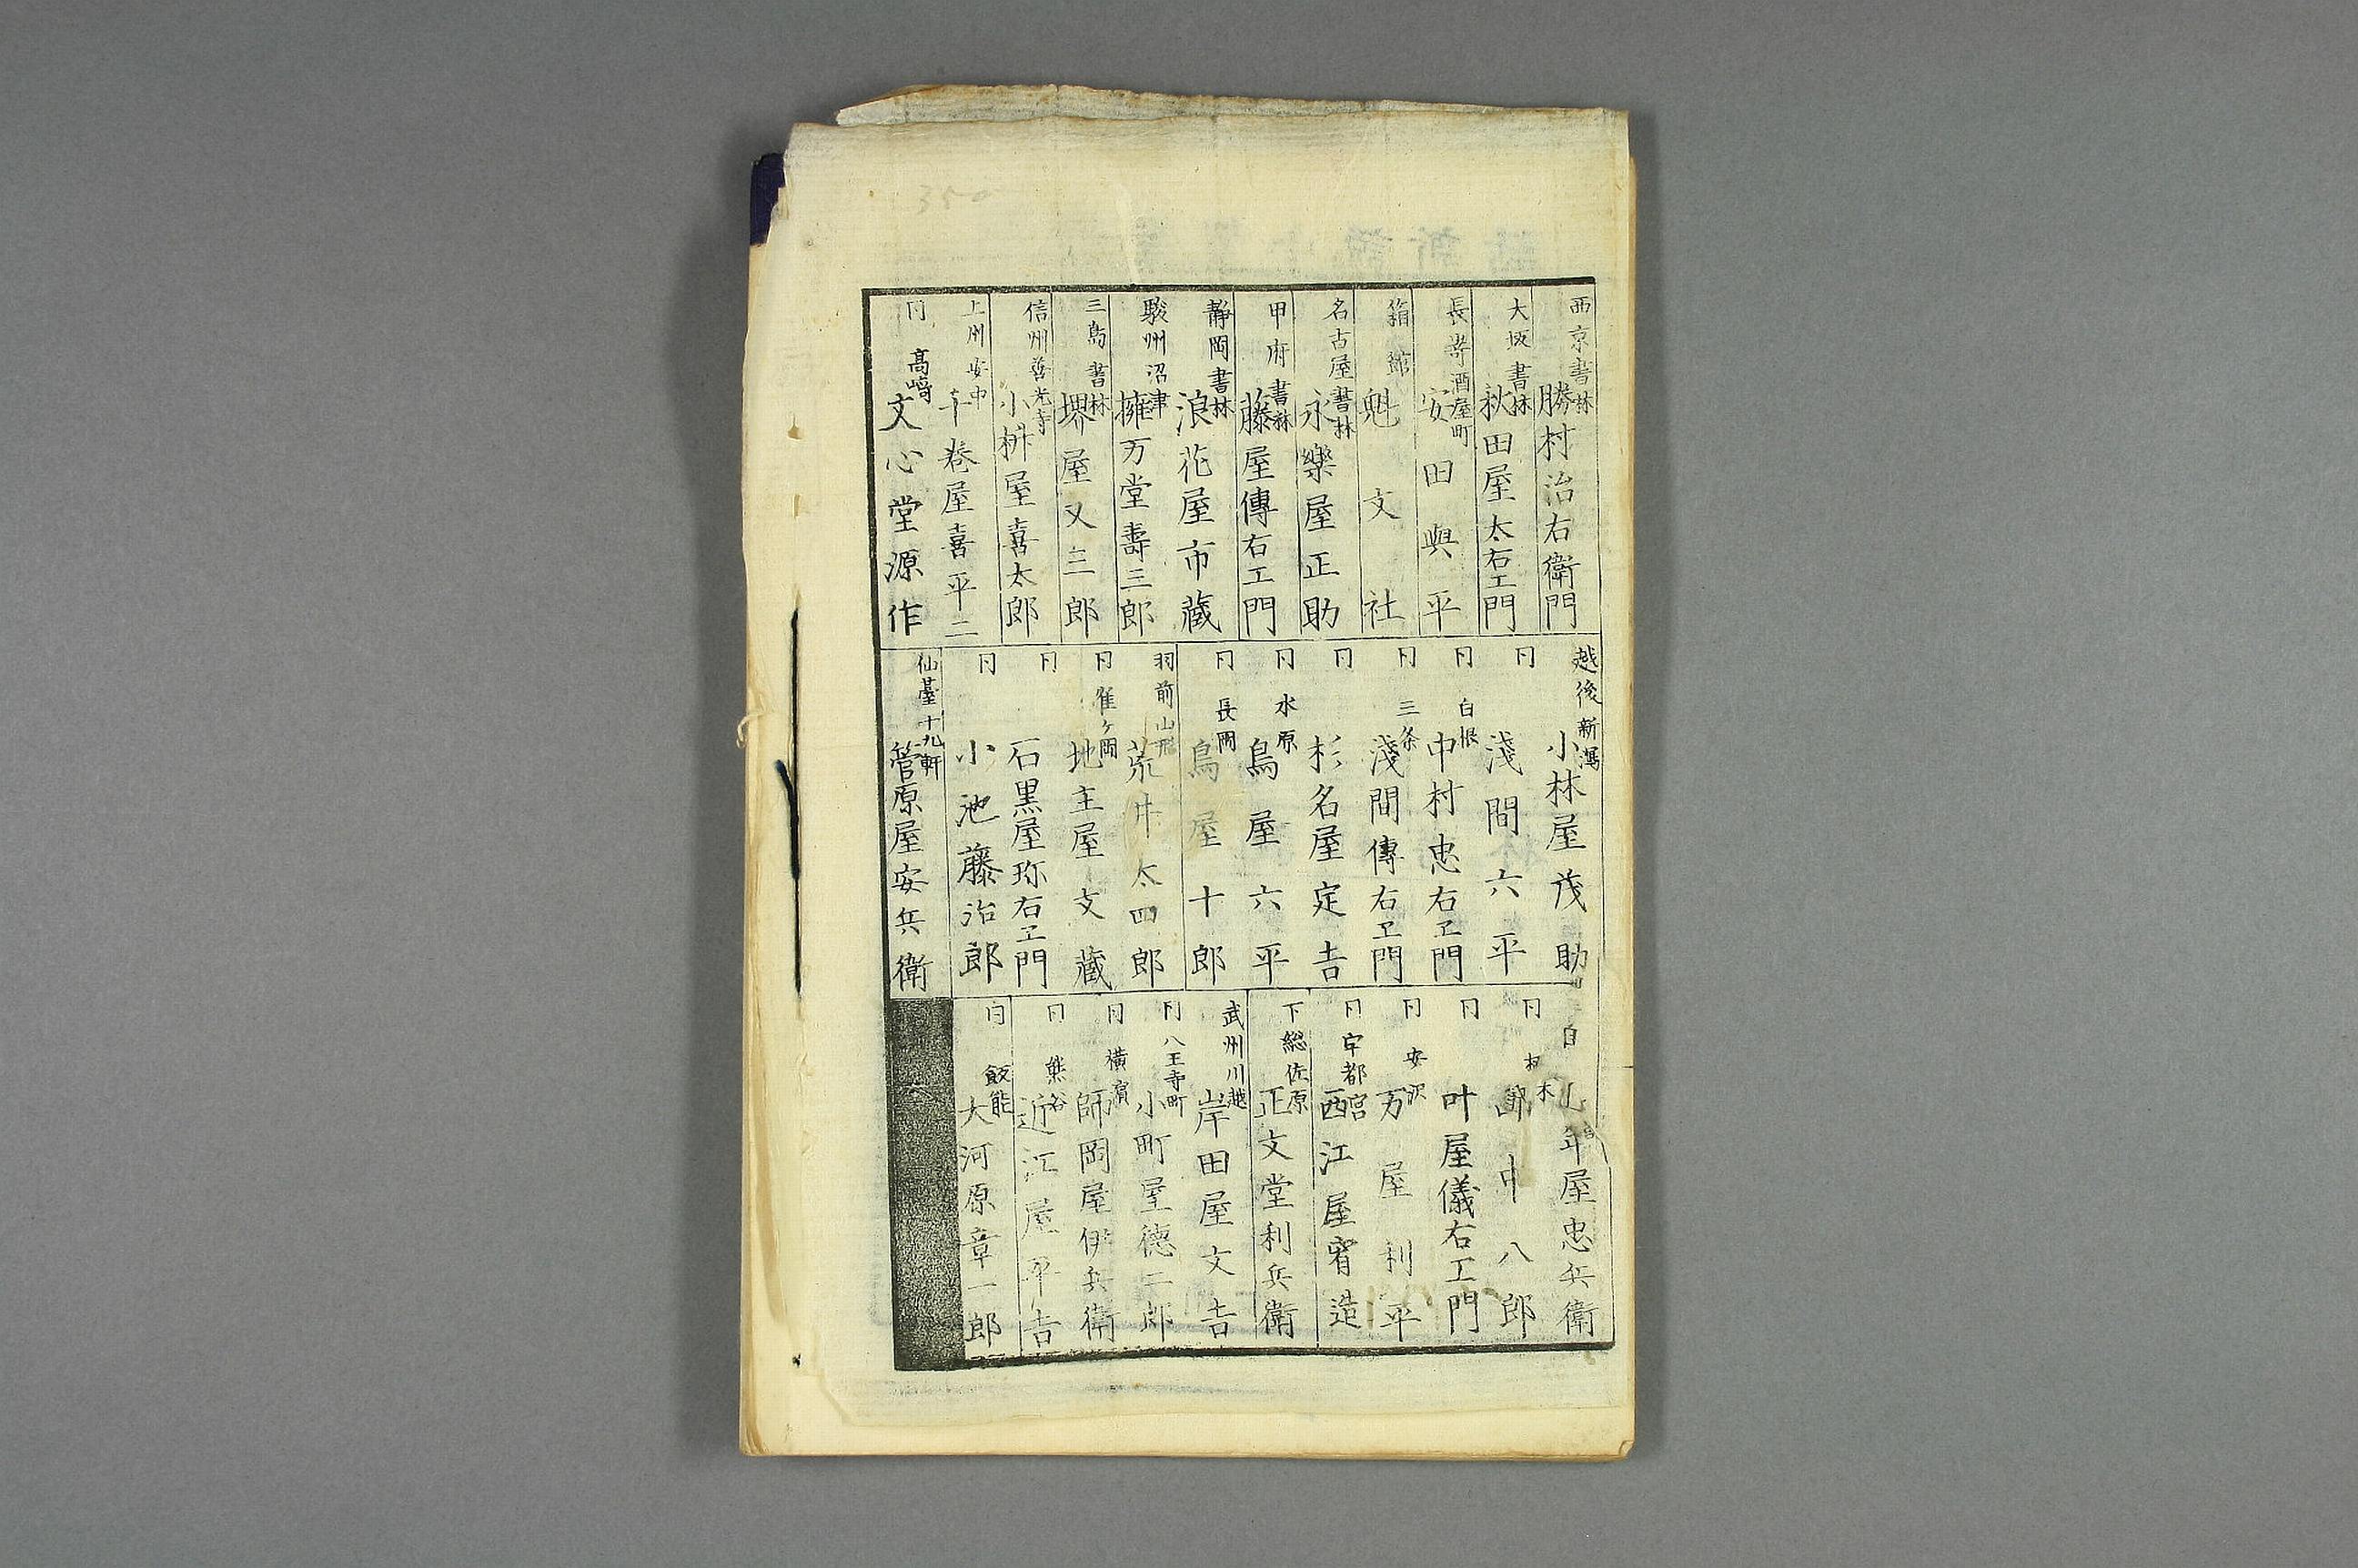 西京書林 勝村治右衛門
大坂書林 秋田屋太右エ門
長嵜酒屋町 安田與平
箱館 魁文社
名古屋書林 永樂屋正助
甲府書林 藤屋傳右エ門
靜岡書林 浪花屋市藏
駿州沼津 擁万堂壽三郎
三島書林 堺屋又三郎
信州善光寺 小枡屋喜太郎
上州安中 十巻屋喜平二
仝 高﨑 文心堂源作
越後新潟 小林屋茂助
仝 淺間六平
仝 白根 中村忠右ヱ門
仝 三条 淺間傳右ヱ門
仝 杉名屋定吉
仝 水原 鳥屋六平
仝 長岡 鳥屋十郎
羽前山形 荒井太四郎
仝 隺ヶ岡 地主屋文藏
仝 石黒屋珎右ヱ門
仝 小池藤治郎
仙臺十九軒 菅原屋安兵衛
年屋忠兵衛
仝 中八郎
仝 叶屋儀右エ門
仝 安沢 万屋利平
仝 宇都宮 西江屋宥造
下総佐原 正文堂利兵衛
武州川越 岸田屋文吉
仝 八王寺町 小町屋德二郎
仝 横濱 師岡屋伊兵衛
仝 熊谷 近江屋平吉
仝 飯能 大河原章一郎
350